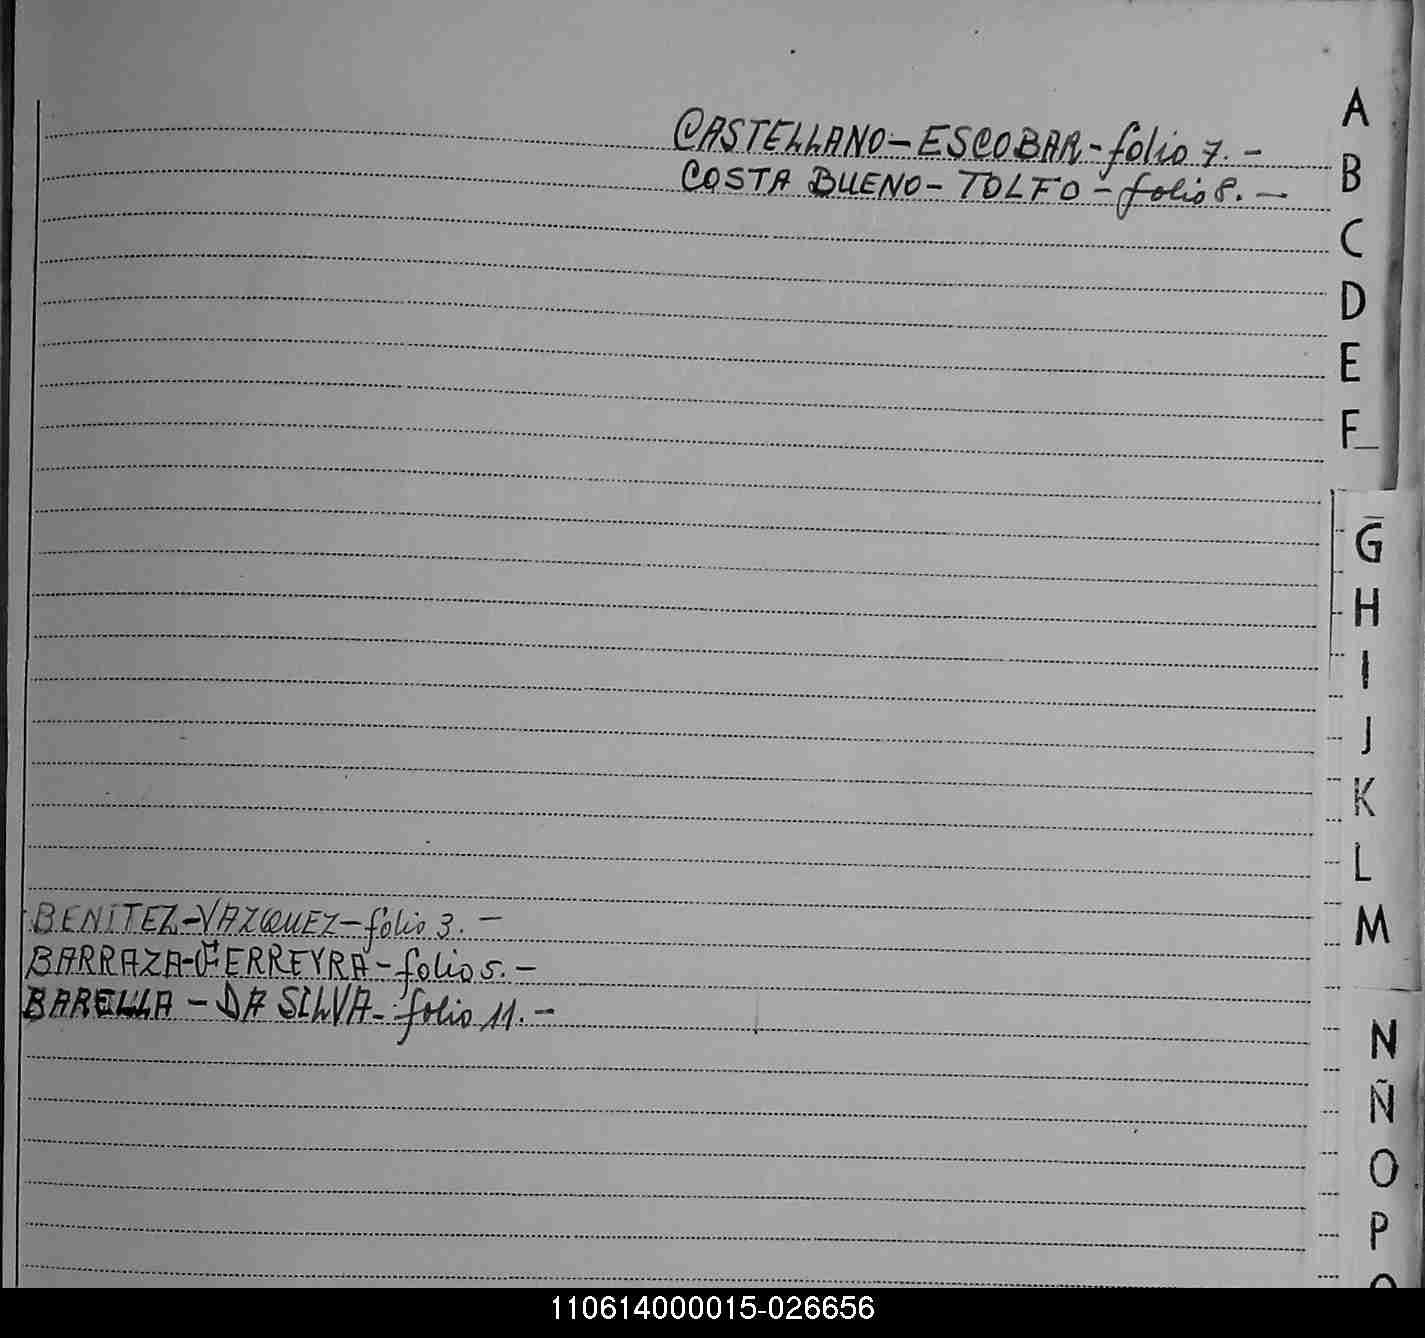 CASTELLANO-ESCOBAR-folio 7.-
COSTA BUENO-TOLFO-folio 8.-
BENITEZ-VAZQUEZ-folio 3.-
BARRAZA-FERREYRA-folio 5.-
BARELLA-DA SILVA-folio 11.-
A
B
C
D
E
F
G
H
I
J
K
L
M
N
Ñ
O
P
110614000015-026656